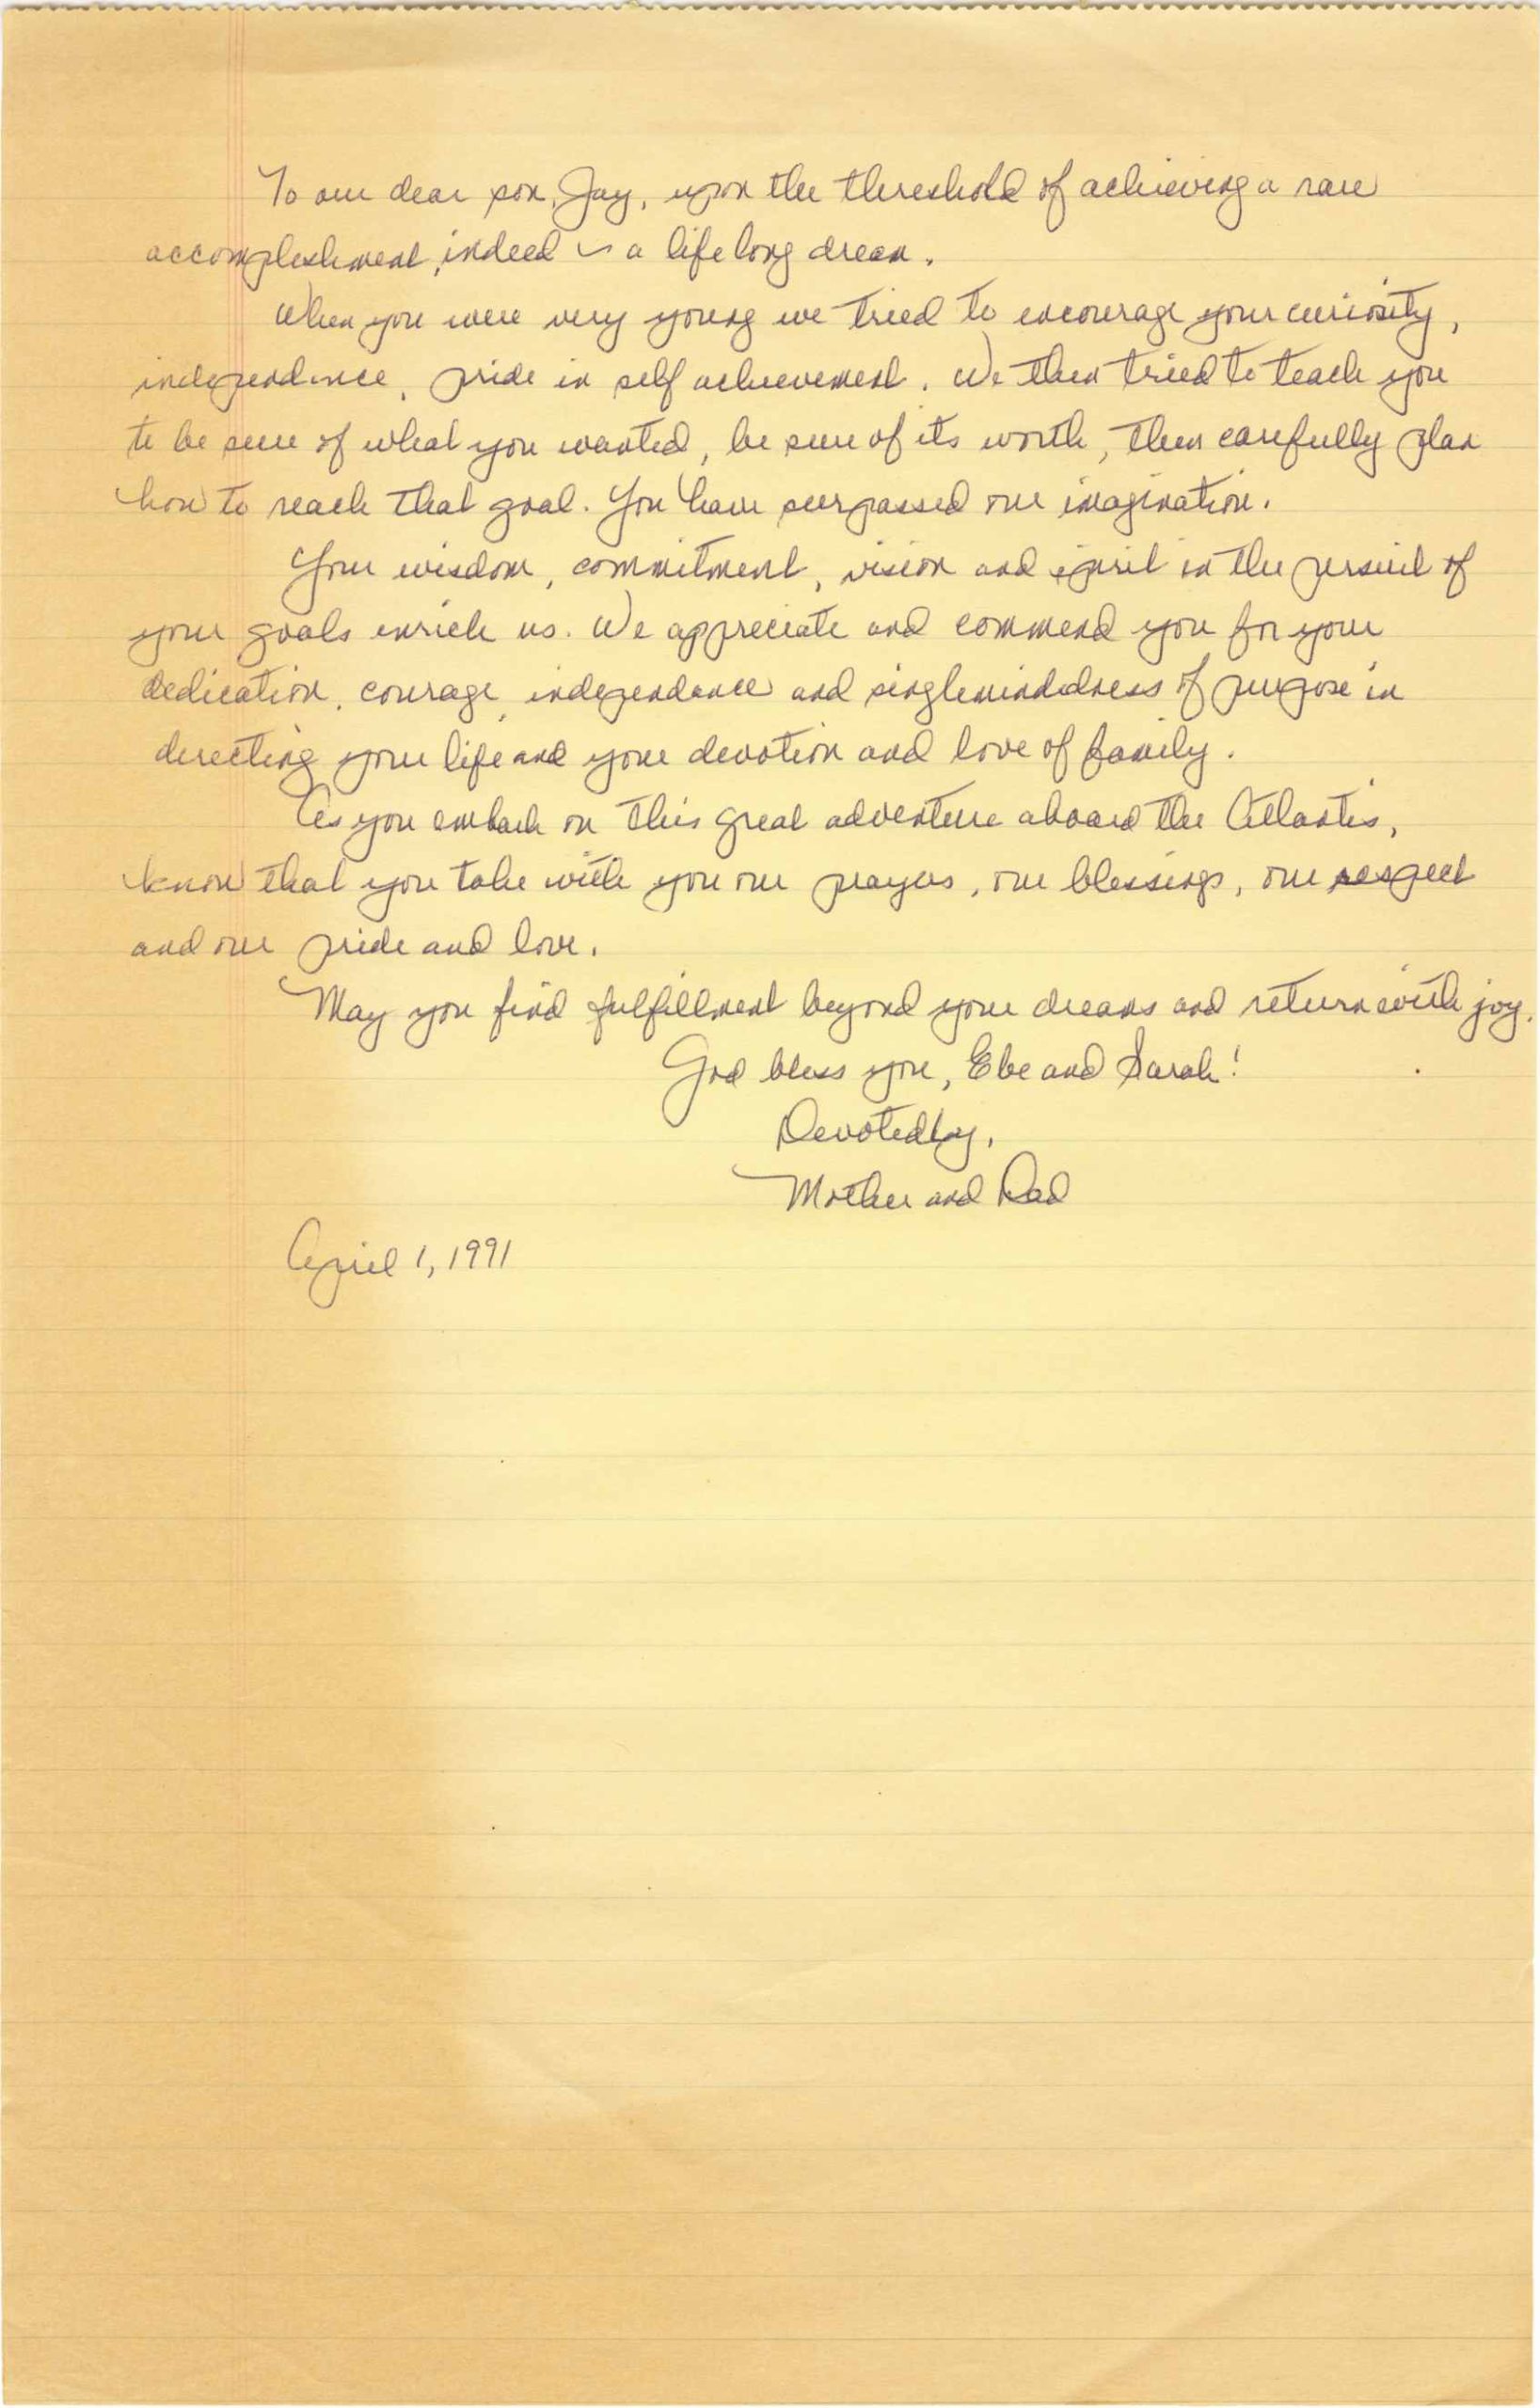 To our dear son, Jay, upon the threshold of achieving a rare
accomplishment, indeed ~ a life long dream.
When you were very young we tried to encourage your curiosity,
independence, pride in self achievement. We then tried to teach you
to be sure of what you wanted, be sure of its worth, then carefully plan
how to reach that goal. You have surpassed our imagination.
Your wisdom, commitment, vision and spirit in the persuit of
your goals enrich us. We appreciate and commend you for your
dedication, courage, independance and singlemindedness of purpose in
directing your life and your devotion and love of family.
As you embark on this great adventure aboard the Atlantis,
know that you take with you our prayers, our blessings, our respect
and our pride and love.
May you find fulfillment beyond your dreams and return with joy.
God bless you, Ebe and Sarah!
Devotedly,
Mother and Dad
April 1, 1991